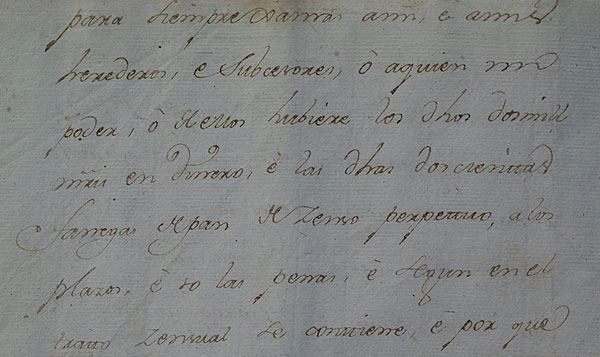 para siempre xamas ami, e amis
herederos, è Subcesores, ò aquien mi
poder, ò de ellos hubiere los dhos dosmill
mrs en dinero, è las dhas doscientas
fanegas de pan de Zenso perpetuo, a los
plazos, è so las penas, è segun en el
trato Zensual se contiene, e por que